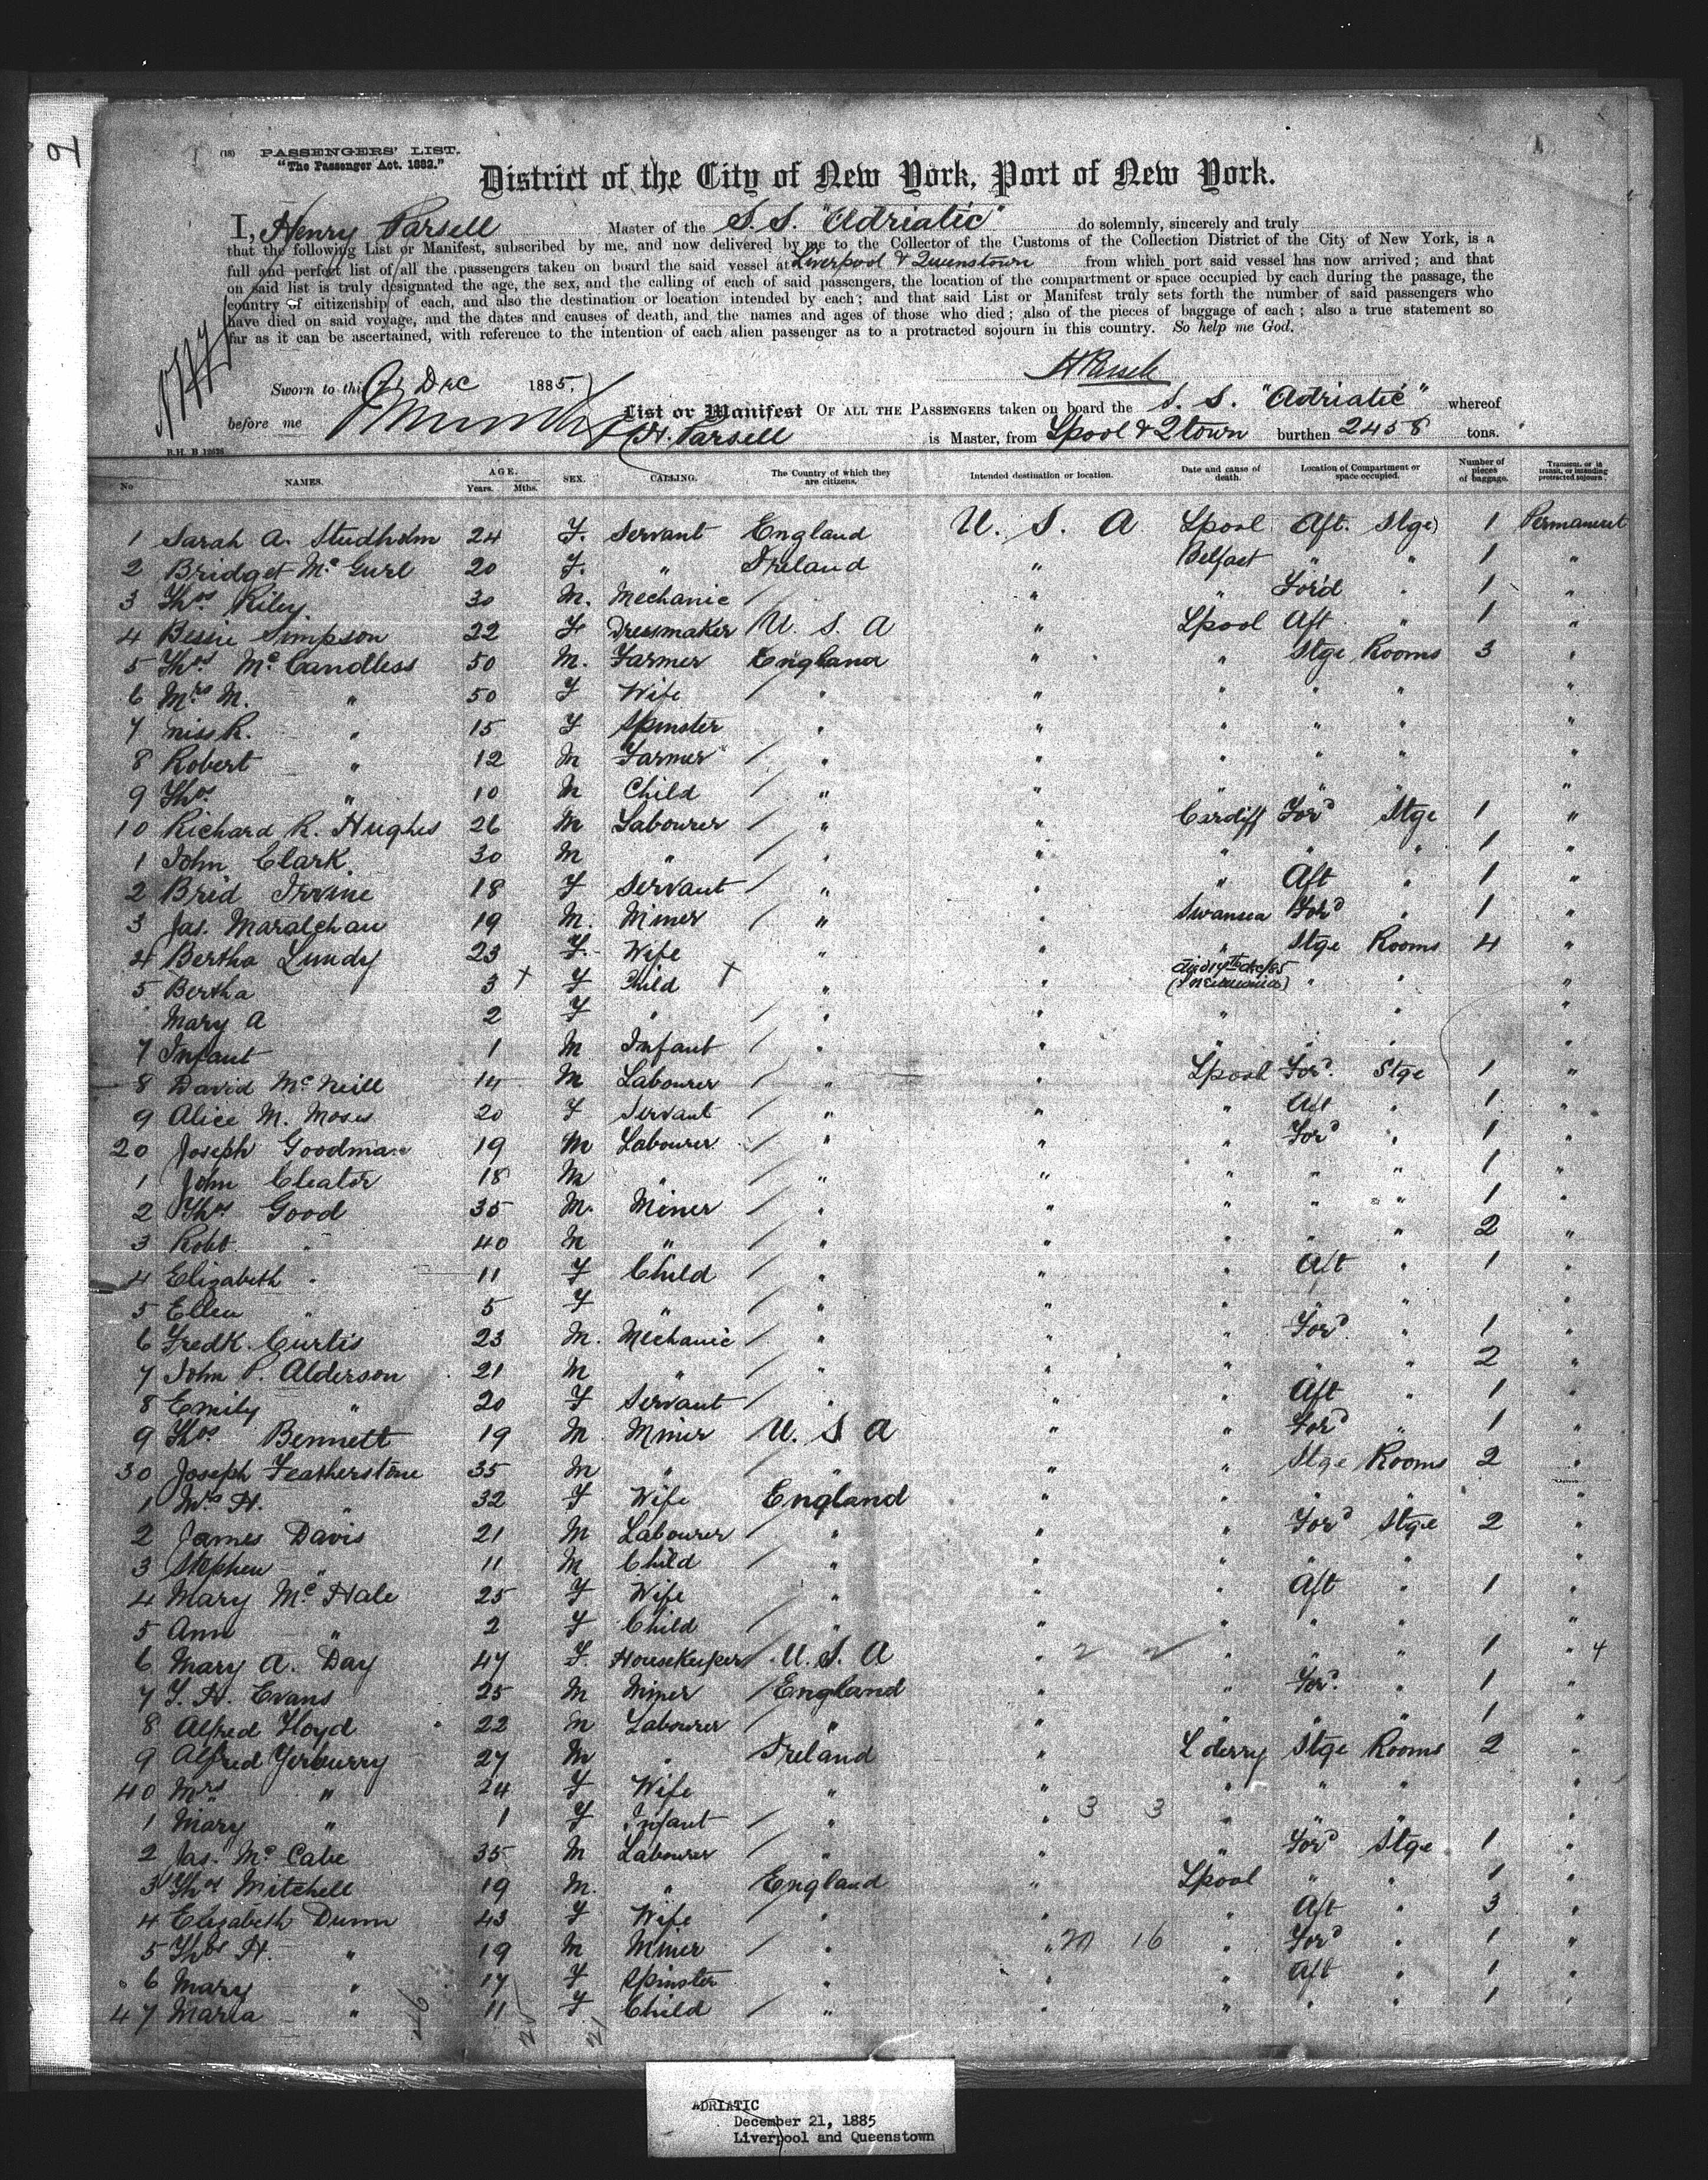 (18) PASSENGERS' LIST.
"The Passenger Act. 1882."
District of the City of New York, Port of New York.
I, Henry Parsell Master of the S. S. "Adriatic" do solemnly, sincerely and truly
that the following List or Manifest, subscribed by me, and now delivered by me to the Collector of the Customs of the Collection District of the City of New York, is a
full and perfect list of all the passengers taken on board the said vessel at Liverpool & Queenstown from which port said vessel has now arrived; and that
on said list is truly designated the age, the sex, and the calling of each of said passengers, the location of the compartment or space occupied by each during the passage, the
country of citizenship of each, and also the destination or location intended by each; and that said List or Manifest truly sets forth the number of said passengers who
have died on said voyage, and the dates and causes of death, and the names and ages of those who died; also of the pieces of baggage of each; also a true statement so
far as it can be ascertained, with reference to the intention of each alien passenger as to a protracted sojourn in this country. So help me God.
H Parsell
Sworn to this 21 Dec 1885,
before me
List or Manifest OF ALL THE PASSENGERS taken on board the S. S. "Adriatic" whereof
H. Parsell is Master, from Lpool & Qtown burthen 2458 tons.
B.H. B 12636
No NAMES. AGE. Years. Mths. SEX. CALLING. The Country of which they are citizens. Intended destination or location. Date and cause of death. Location of Compartment or space occupied. Number of pieces of baggage. Transient, or in transit, or intending protracted sojourn.
1 Sarah A. Studholm 24 F. Servant England U. S. A Lpool Aft. Stge 1 Permanent
2 Bridget Mc Gurl 20 F. " Ireland " Belfast " " 1 "
3 Thos Riley 30 M. Mechanic / " " For'd " 1 "
4 Bessie Simpson 22 F Dressmaker U. S. A " Lpool Aft " 1 "
5 Thos Mc Candless 50 M. Farmer England " " Stge Rooms 3 "
6 Mrs M. " 50 F Wife / " " " " " "
7 Miss R. " 15 F Spinster " " " " " "
8 Robert " 12 M Farmer / " " " " " "
9 Thos " 10 M Child / " " " " " "
10 Richard R. Hughes 26 M Labourer / " " Cardiff For'd Stge 1 "
1 John Clark 30 M " / " " " " " 1 "
2 Brid Irvine 18 F Servant / " " " Aft " 1 "
3 Jas. Maralchau 19 M. Miner / " " Swansea For'd " 1 "
4 Bertha Lundy 23 F. Wife " " " Stge Rooms 4 "
5 Bertha 3 + F Child + " " died 17th dec/85 " " "
Mary A 2 F " / " " " " "
7 Infant 1 M Infant / " " " " " "
8 David Mc Neill 14 M Labourer / " " Lpool For'd Stge 1 "
9 Alice M. Moses 20 F Servant / " " " Aft " 1 "
20 Joseph Goodman 19 M Labourer / " " " For'd " 1 "
1 John Cleator 18 M " / " " " " " 1 "
2 Thos Good 35 M. Miner / " " " " " 1 "
3 Robt " 40 M " / " " " " " 2 "
4 Elizabeth " 11 F Child / " " " Aft " 1 "
5 Ellen " 5 F " / " " " " " "
6 Fredk. Curtis 23 M. Mechanic / " " " For'd " 1 "
7 John P. Alderson 21 M " / " " " " " 2 "
8 Emily " 20 F Servant / " " " Aft " 1 "
9 Thos Bennett 19 M Miner U. S A " " For'd " 1 "
30 Joseph Featherstone 35 M " / " " " Stge Rooms 2 "
1 Mrs H. " 32 F Wife England " " " " "
2 James Davis 21 M Labourer / " " " For'd Stge 2 "
3 Stephen " 11 M Child / " " " " " "
4 Mary Mc Hale 25 F Wife " " " Aft " 1 "
5 Ann " 2 F Child / " " " " " "
6 Mary A. Day 47 F. Housekeeper / U. S. A " 2 2 " " " 1 " 4
7 T. H. Evans 25 M Miner / England " " For'd " 1 "
8 Alfred Lloyd 22 M Labourer / " " " " " 1 "
9 Alfred Yerburry 27 M " Ireland " L derry Stge Rooms 2 "
40 Mrs " 24 F Wife " " " " " "
1 Mary " 1 F Infant / " " 3 3 " " " "
2 Jas. Mc Cabe 35 M Labourer / " " " For'd Stge 1 "
3 Thos Mitchell 19 M. " England " Lpool " " 1 "
4 Elizabeth Dunn 43 F Wife " " " Aft " 3 "
5 Thos H. " 19 M Miner / " " 20 16 " For'd " 1 "
6 Mary " 17 F Spinster " " " Aft " 1 "
47 Maria " 11 F Child / " " " " " 1 "
26 21
ADRIATIC
December 21, 1885
Liverpool and Queenstown